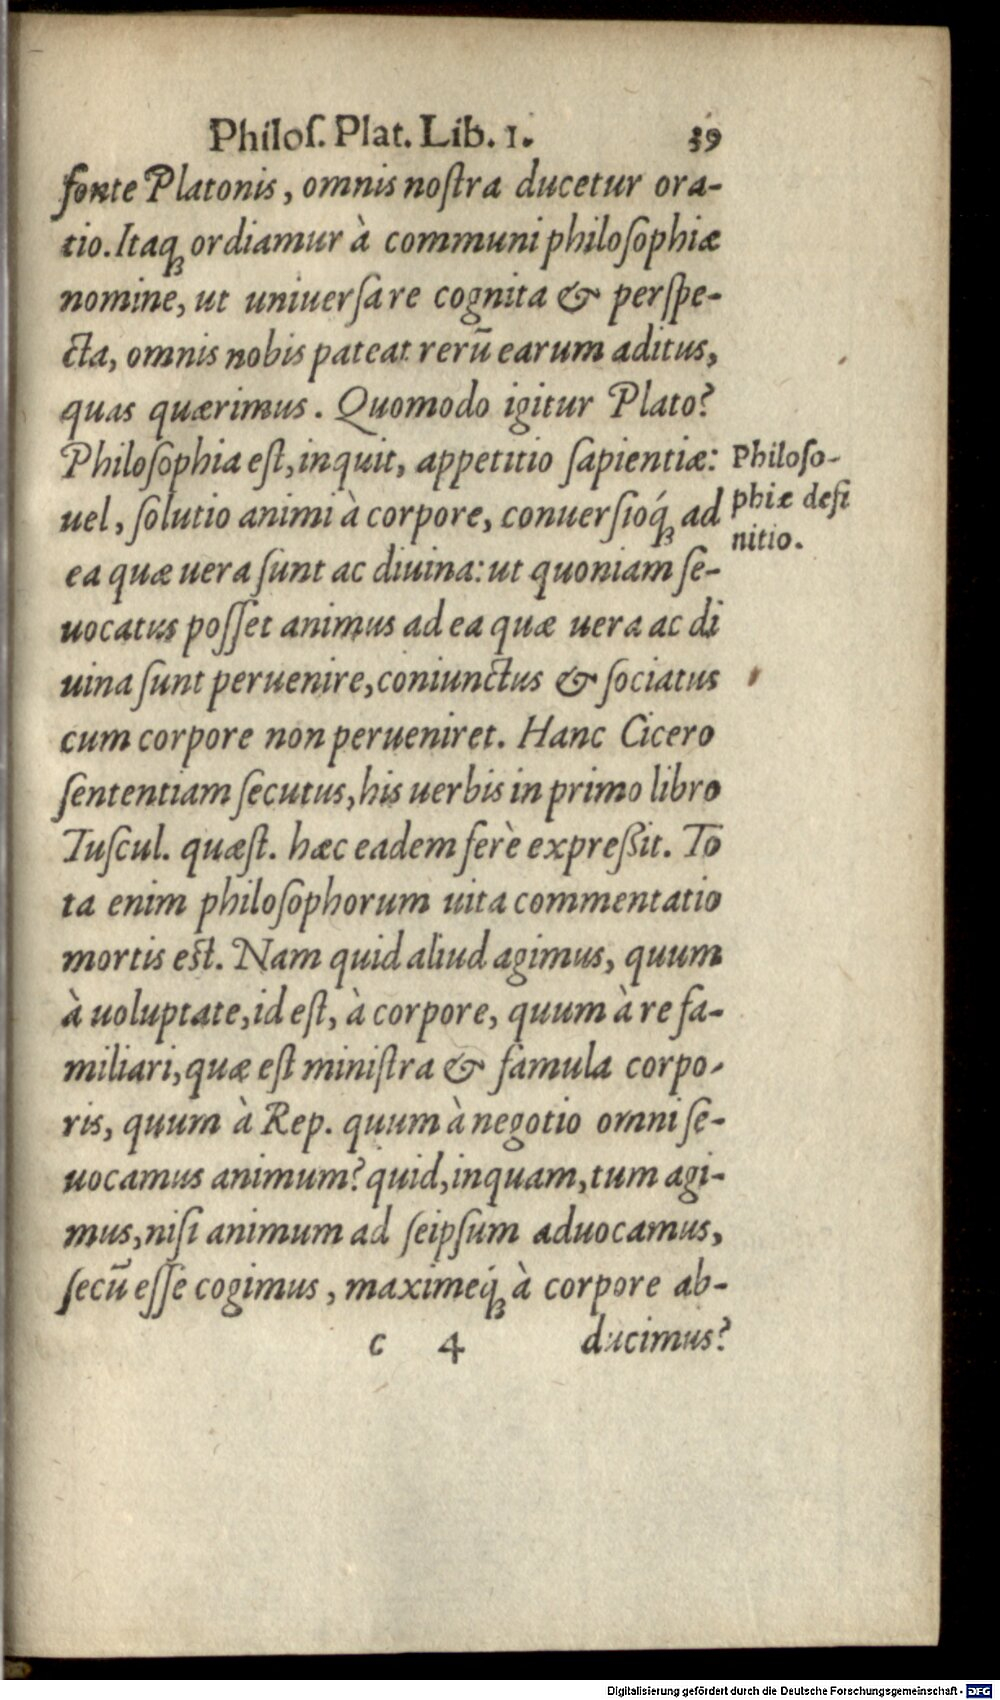 Philoſ. Plat. Lib. 1. 39
fonte Platonis, omnis noſtra ducetur ora-
tio. Itaqꝫ ordiamur à communi philoſophiæ
nomine, ut uniuerſa re cognita & perſpe-
cta, omnis nobis pateat rerũ earum aditus,
quas quærimus. Quomodo igitur Plato?
Philoſophia eſt, inquit, appetitio ſapientiæ:
uel, ſolutio animi à corpore, conuerſioq́ꝫ ad
ea quæ uera ſunt ac diuina: ut quoniam ſe-
uocatus poſſet animus ad ea quæ uera ac di
uina ſunt peruenire, coniunctus & ſociatus
cum corpore non perueniret. Hanc Cicero
ſententiam ſecutus, his uerbis in primo libro
Tuſcul. quæſt. hæc eadem ferè expreßit. To
ta enim philoſophorum uita commentatio
mortis eſt. Nam quid aliud agimus, quum
à uoluptate, id eſt, à corpore, quum à re fa-
miliari, quæ eſt miniſtra & famula corpo-
ris, quum à Rep. quum à negotio omni ſe-
uocamus animum? quid, inquam, tum agi-
mus, niſi animum ad ſeipſum aduocamus,
ſecũ eſſe cogimus, maximeq́ꝫ à corpore ab-
c 4 ducimus?
Philoſo-
phiæ defi
nitio.
Digitalisierung gefördert durch die Deutsche Forschungsgemeinschaft - DFG